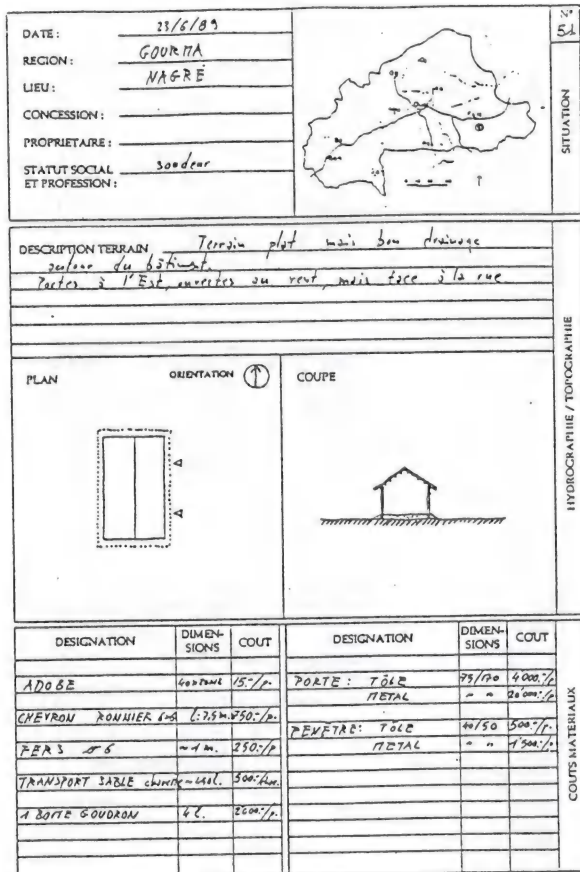 DATE : 23/6/89
REGION : GOURMA
LIEU : NAGRÉ
CONCESSION :
PROPRIETAIRE :
STATUT SOCIAL ET PROFESSION : Soudeur
N°
SITUATION
DESCRIPTION TERRAIN Terrain plat mais bon drainage
autour du bâtiment.
Portes à l'Est, ouvertes au vent, mais face à la rue
HYDROGRAPHIE / TOPOGRAPHIE
PLAN
ORIENTATION
COUPE
DESIGNATION DIMEN-SIONS COUT
ADOBE 15.-/p.
CHEVRON RONNIER 750.-/p.
FERS ø 6 ~ 1 m. 250.-/p.
TRANSPORT SABLE
1 BOITE GOUDRON 4 l.
DESIGNATION DIMEN-SIONS COUT
PORTE : TÔLE 75/170 4'000.-/p.
METAL " " 20'000.-/p.
FENÊTRE : TÔLE 40/50 500.-/p.
METAL " " 1'500.-/p.
COUTS MATERIAUX